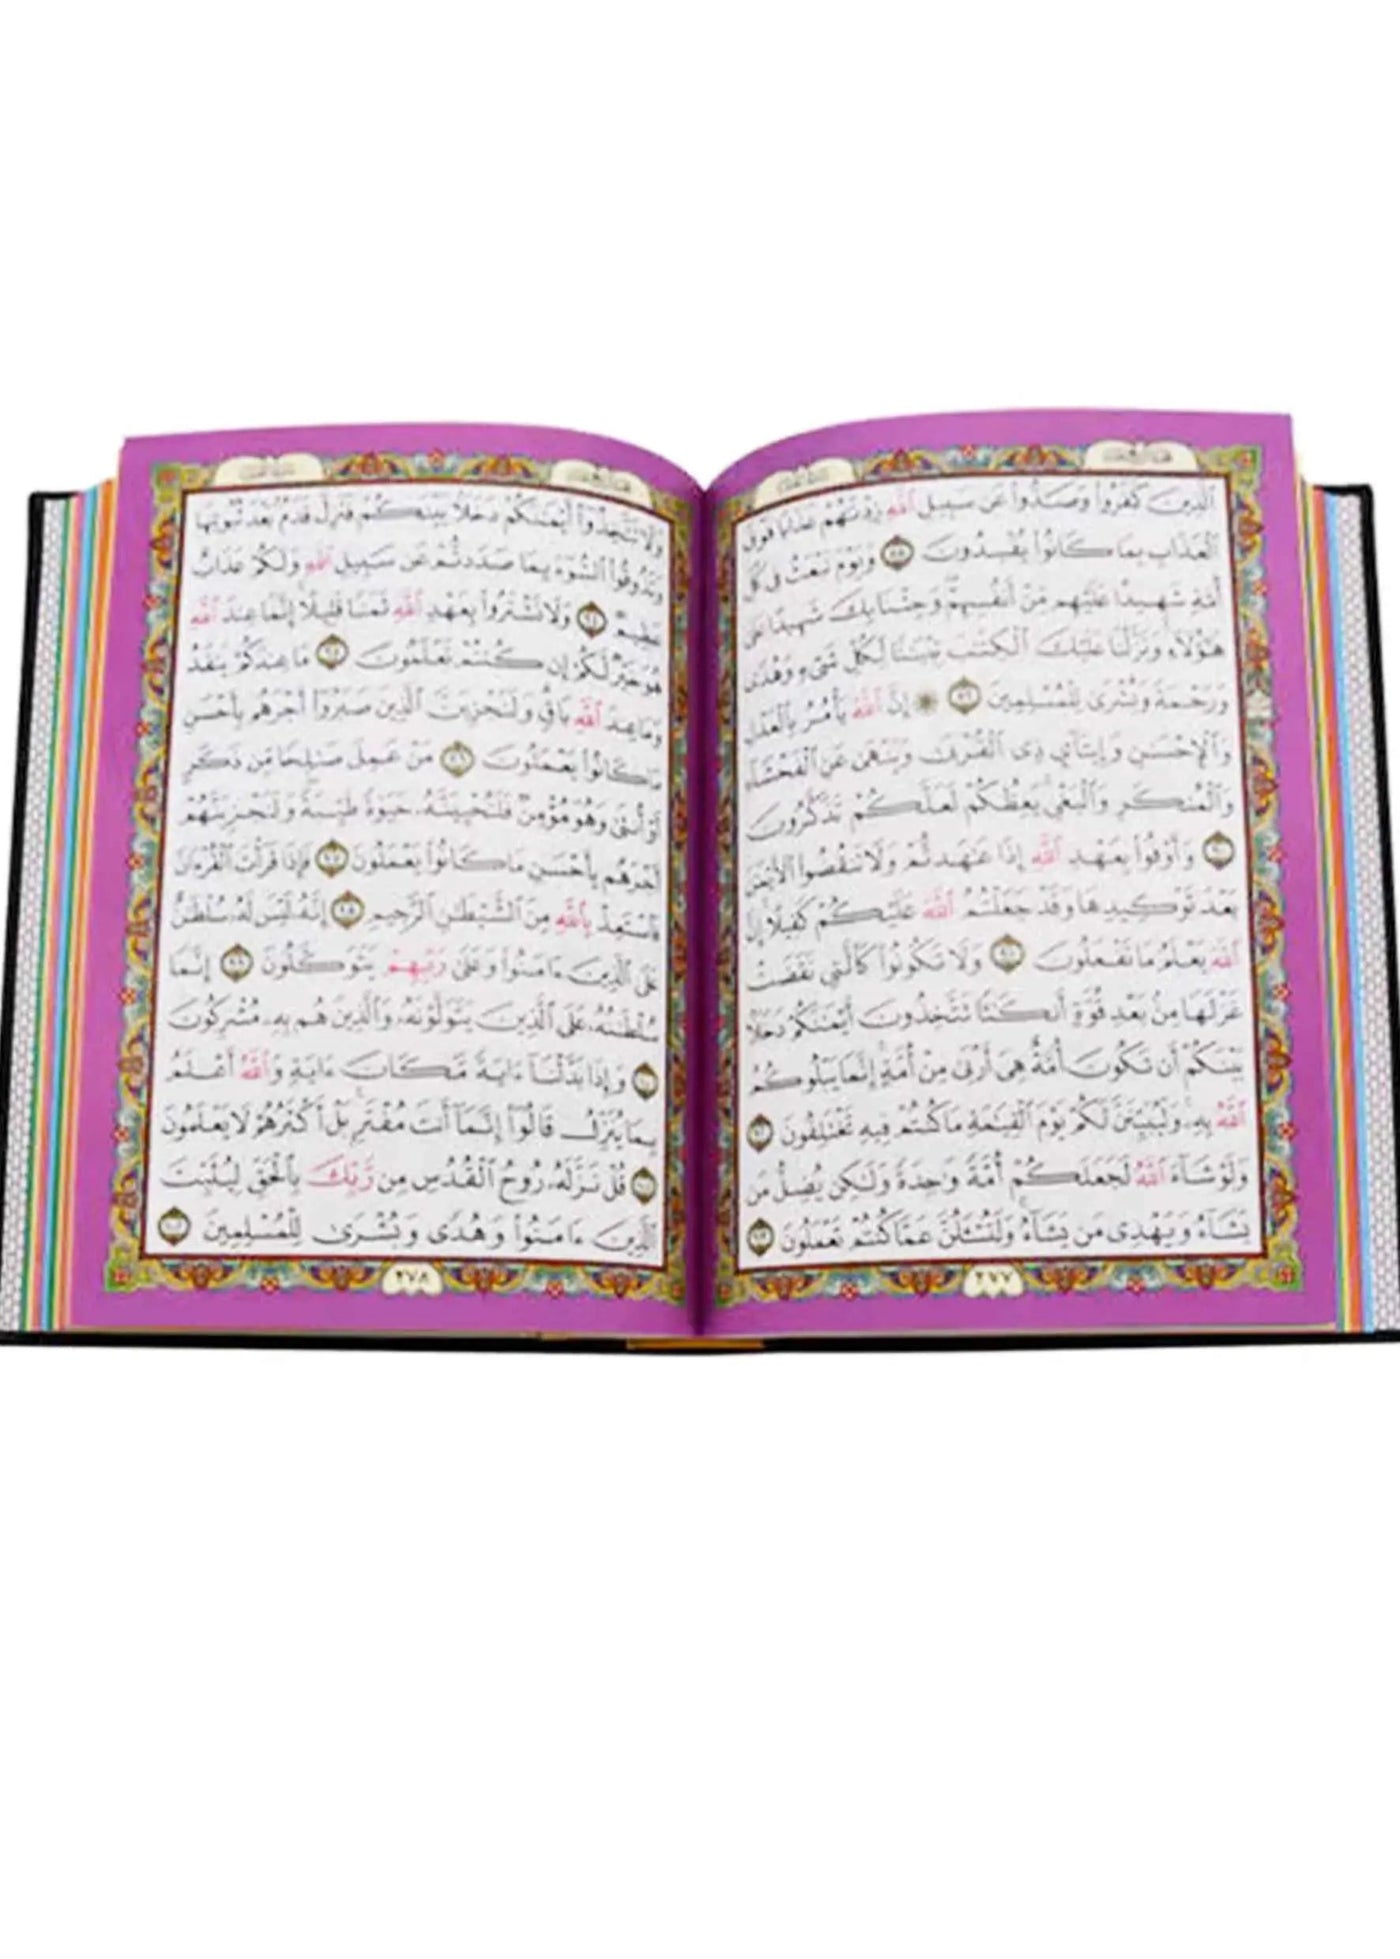 ٱلَّذِينَ كَفَرُوا۟ وَصَدُّوا۟ عَن سَبِيلِ ٱللَّهِ زِدْنَٰهُمْ عَذَابًا فَوْقَ
ٱلْعَذَابِ بِمَا كَانُوا۟ يُفْسِدُونَ ٨٨ وَيَوْمَ نَبْعَثُ فِى كُلِّ
أُمَّةٍ شَهِيدًا عَلَيْهِم مِّنْ أَنفُسِهِمْ وَجِئْنَا بِكَ شَهِيدًا عَلَىٰ
هَٰٓؤُلَآءِ وَنَزَّلْنَا عَلَيْكَ ٱلْكِتَٰبَ تِبْيَٰنًا لِّكُلِّ شَىْءٍ وَهُدًى
وَرَحْمَةً وَبُشْرَىٰ لِلْمُسْلِمِينَ ٨٩ ۞ إِنَّ ٱللَّهَ يَأْمُرُ بِٱلْعَدْلِ
وَٱلْإِحْسَٰنِ وَإِيتَآئِ ذِى ٱلْقُرْبَىٰ وَيَنْهَىٰ عَنِ ٱلْفَحْشَآءِ
وَٱلْمُنكَرِ وَٱلْبَغْىِ يَعِظُكُمْ لَعَلَّكُمْ تَذَكَّرُونَ
٩٠ وَأَوْفُوا۟ بِعَهْدِ ٱللَّهِ إِذَا عَٰهَدتُّمْ وَلَا تَنقُضُوا۟ ٱلْأَيْمَٰنَ
بَعْدَ تَوْكِيدِهَا وَقَدْ جَعَلْتُمُ ٱللَّهَ عَلَيْكُمْ كَفِيلًا إِنَّ
ٱللَّهَ يَعْلَمُ مَا تَفْعَلُونَ ٩١ وَلَا تَكُونُوا۟ كَٱلَّتِى نَقَضَتْ
غَزْلَهَا مِنۢ بَعْدِ قُوَّةٍ أَنكَٰثًا تَتَّخِذُونَ أَيْمَٰنَكُمْ دَخَلًۢا
بَيْنَكُمْ أَن تَكُونَ أُمَّةٌ هِىَ أَرْبَىٰ مِنْ أُمَّةٍ إِنَّمَا يَبْلُوكُمُ
ٱللَّهُ بِهِۦ وَلَيُبَيِّنَنَّ لَكُمْ يَوْمَ ٱلْقِيَٰمَةِ مَا كُنتُمْ فِيهِ تَخْتَلِفُونَ ٩٢
وَلَوْ شَآءَ ٱللَّهُ لَجَعَلَكُمْ أُمَّةً وَٰحِدَةً وَلَٰكِن يُضِلُّ مَن
يَشَآءُ وَيَهْدِى مَن يَشَآءُ وَلَتُسْـَٔلُنَّ عَمَّا كُنتُمْ تَعْمَلُونَ ٩٣
٢٧٧
وَلَا تَتَّخِذُوٓا۟ أَيْمَٰنَكُمْ دَخَلًۢا بَيْنَكُمْ فَتَزِلَّ قَدَمٌۢ بَعْدَ ثُبُوتِهَا
وَتَذُوقُوا۟ ٱلسُّوٓءَ بِمَا صَدَدتُّمْ عَن سَبِيلِ ٱللَّهِ وَلَكُمْ عَذَابٌ
عَظِيمٌ ٩٤ وَلَا تَشْتَرُوا۟ بِعَهْدِ ٱللَّهِ ثَمَنًا قَلِيلًا إِنَّمَا عِندَ ٱللَّهِ
هُوَ خَيْرٌ لَّكُمْ إِن كُنتُمْ تَعْلَمُونَ ٩٥ مَا عِندَكُمْ يَنفَدُ
وَمَا عِندَ ٱللَّهِ بَاقٍ وَلَنَجْزِيَنَّ ٱلَّذِينَ صَبَرُوٓا۟ أَجْرَهُم بِأَحْسَنِ
مَا كَانُوا۟ يَعْمَلُونَ ٩٦ مَنْ عَمِلَ صَٰلِحًا مِّن ذَكَرٍ
أَوْ أُنثَىٰ وَهُوَ مُؤْمِنٌ فَلَنُحْيِيَنَّهُۥ حَيَوٰةً طَيِّبَةً وَلَنَجْزِيَنَّهُمْ
أَجْرَهُم بِأَحْسَنِ مَا كَانُوا۟ يَعْمَلُونَ ٩٧ فَإِذَا قَرَأْتَ ٱلْقُرْءَانَ
فَٱسْتَعِذْ بِٱللَّهِ مِنَ ٱلشَّيْطَٰنِ ٱلرَّجِيمِ ٩٨ إِنَّهُۥ لَيْسَ لَهُۥ سُلْطَٰنٌ
عَلَى ٱلَّذِينَ ءَامَنُوا۟ وَعَلَىٰ رَبِّهِمْ يَتَوَكَّلُونَ ٩٩ إِنَّمَا
سُلْطَٰنُهُۥ عَلَى ٱلَّذِينَ يَتَوَلَّوْنَهُۥ وَٱلَّذِينَ هُم بِهِۦ مُشْرِكُونَ
١٠٠ وَإِذَا بَدَّلْنَآ ءَايَةً مَّكَانَ ءَايَةٍ وَٱللَّهُ أَعْلَمُ
بِمَا يُنَزِّلُ قَالُوٓا۟ إِنَّمَآ أَنتَ مُفْتَرٍۭ بَلْ أَكْثَرُهُمْ لَا يَعْلَمُونَ
١٠١ قُلْ نَزَّلَهُۥ رُوحُ ٱلْقُدُسِ مِن رَّبِّكَ بِٱلْحَقِّ لِيُثَبِّتَ
ٱلَّذِينَ ءَامَنُوا۟ وَهُدًى وَبُشْرَىٰ لِلْمُسْلِمِينَ ١٠٢
٢٧٨